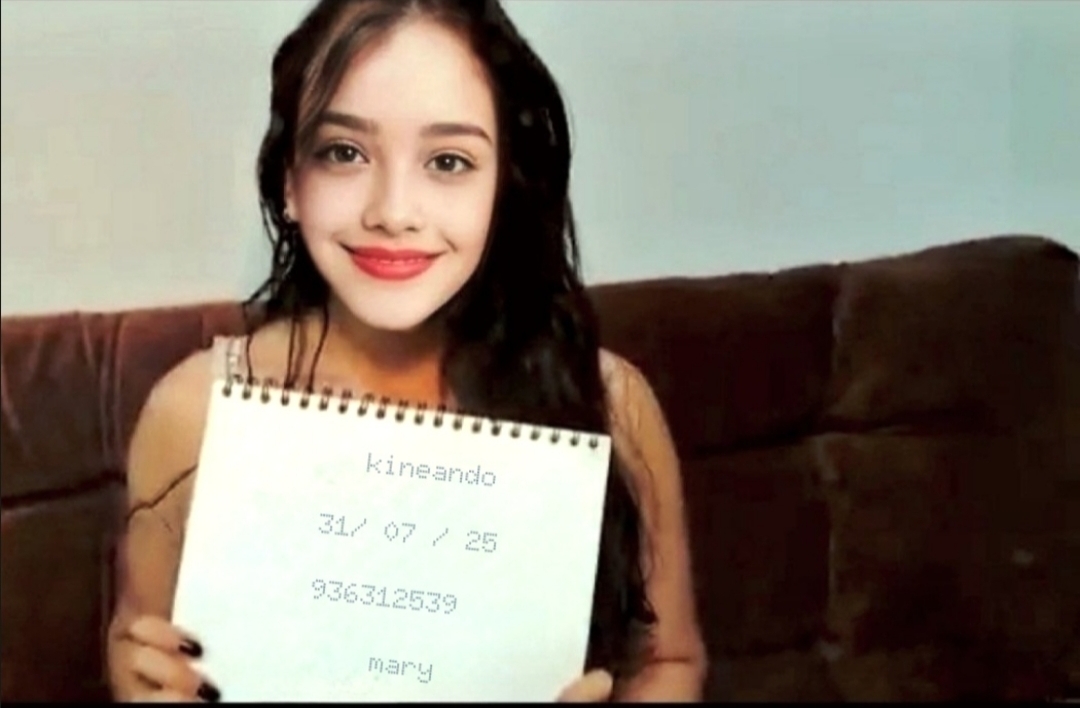 kineando
31/ 07 / 25
936312539
mary